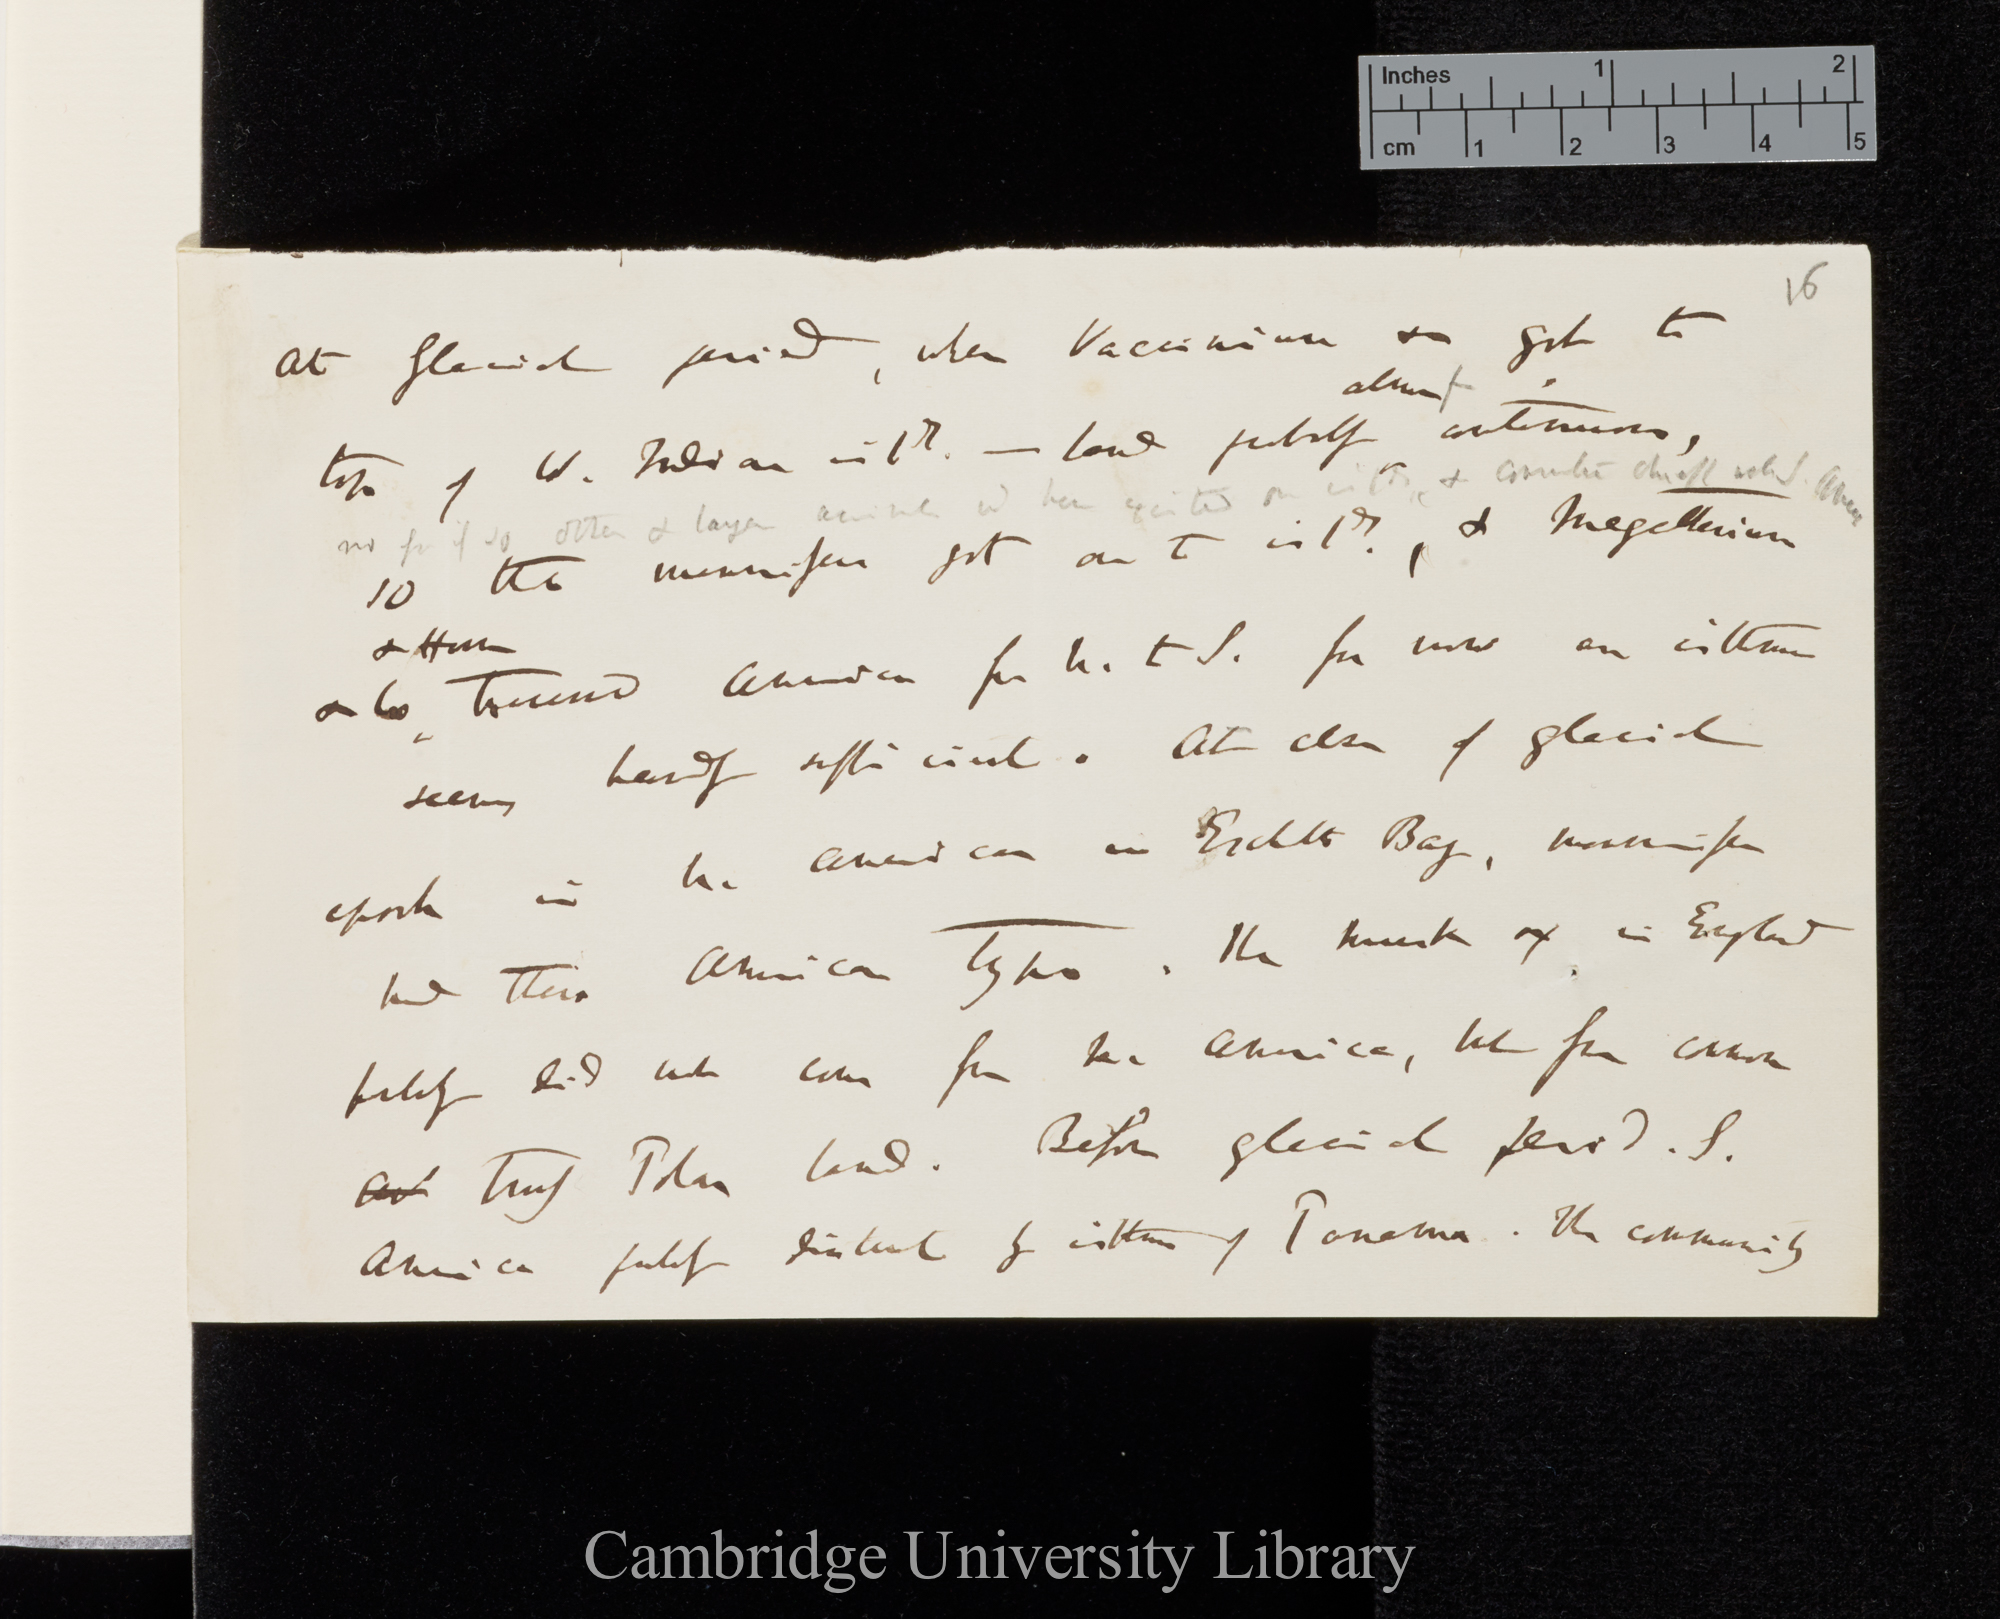 Inches 1 2
cm 1 2 3 4 5
16
At Glacial period, when Vaccinium &c got to
almost
top of W. Indian isld. — land probably continuous,
no for if so other & larger animals wd have existed on islds, &
so the mammifers got on to islds., & Megatherium
& Horse
& Co traversed America from N. to S. for now an isthmus
seems hardly sufficient. At close of glacial
epoch in N. American in Eschholtz Bay, mammifers
had there American type. The musk ox in England
probably did not come from N. America, but from common
truly Polar land. Before glacial period. S.
America probably distinct by isthmus of Panama. The community
Cambridge University Library